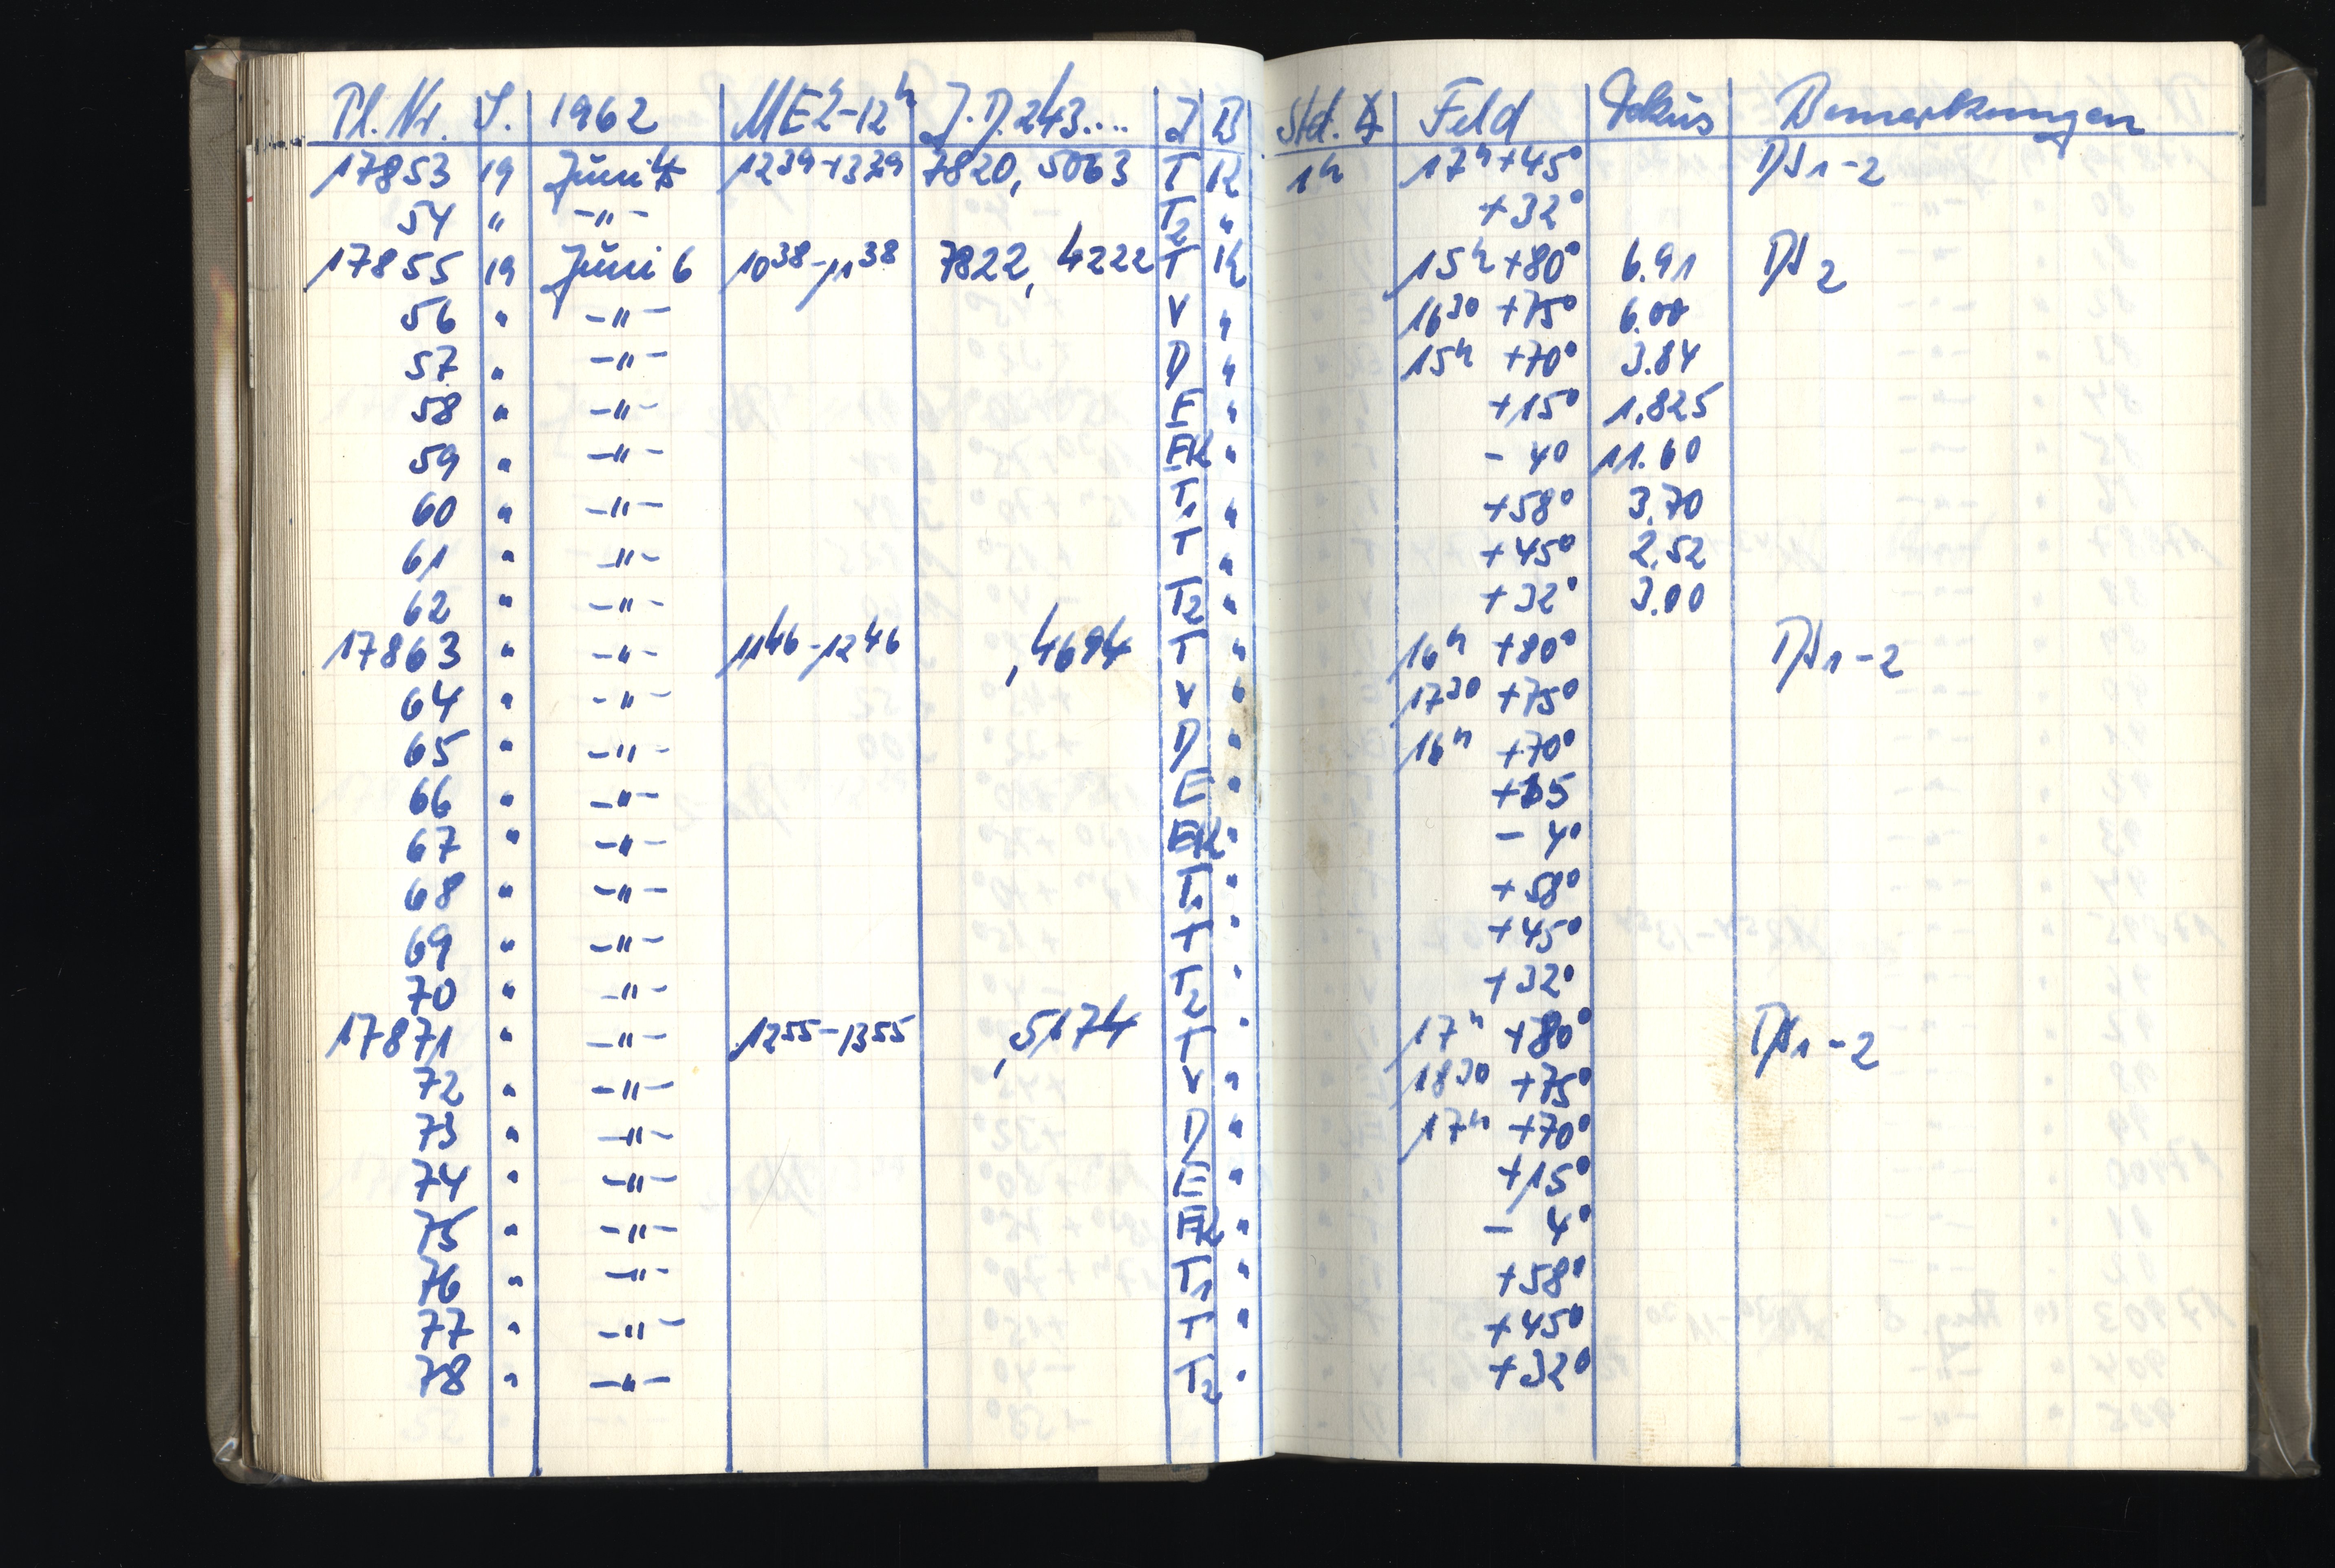 Pl. Nr. S. 1962 MEZ-12h J.D. 243.... I B Std. ∢ Feld Fokus Bemerkungen
17853 19 Juni 4 12 39-13 29 7820, 5063 T K 1h 17h +45° 1-2
54 " -"- T2 " +32°
17855 19 Juni 6 10 38-11 38 7822, 4222 T K 15h +80° 6.91 2
56 " -"- V " 16 30 +75° 6.00
57 " -"- D " 15h +70° 3.84
58 " -"- E " +15° 1.825
59 " -"- EK " - 4° 11.60
60 " -"- T1 " +58° 3.70
61 " -"- T " +45° 2.52
62 " -"- T2 " +32° 3.00
17863 " -"- 11 46-12 46 ,4694 T " 16h +80° 1-2
64 " -"- V " 17 30 +75°
65 " -"- D " 16h +70°
66 " -"- E " +15
67 " -"- EK " - 4°
68 " -"- T1 " +58°
69 " -"- T " +45°
70 " -"- T2 " +32°
17871 " -"- 12 55-13 55 ,5174 T " 17h +80° 1-2
72 " -"- V " 18 30 +75°
73 " -"- D " 17h +70°
74 " -"- E " +15°
75 " -"- EK " - 4°
76 " -"- T1 " +58°
77 " -"- T " +45°
78 " -"- T2 " +32°